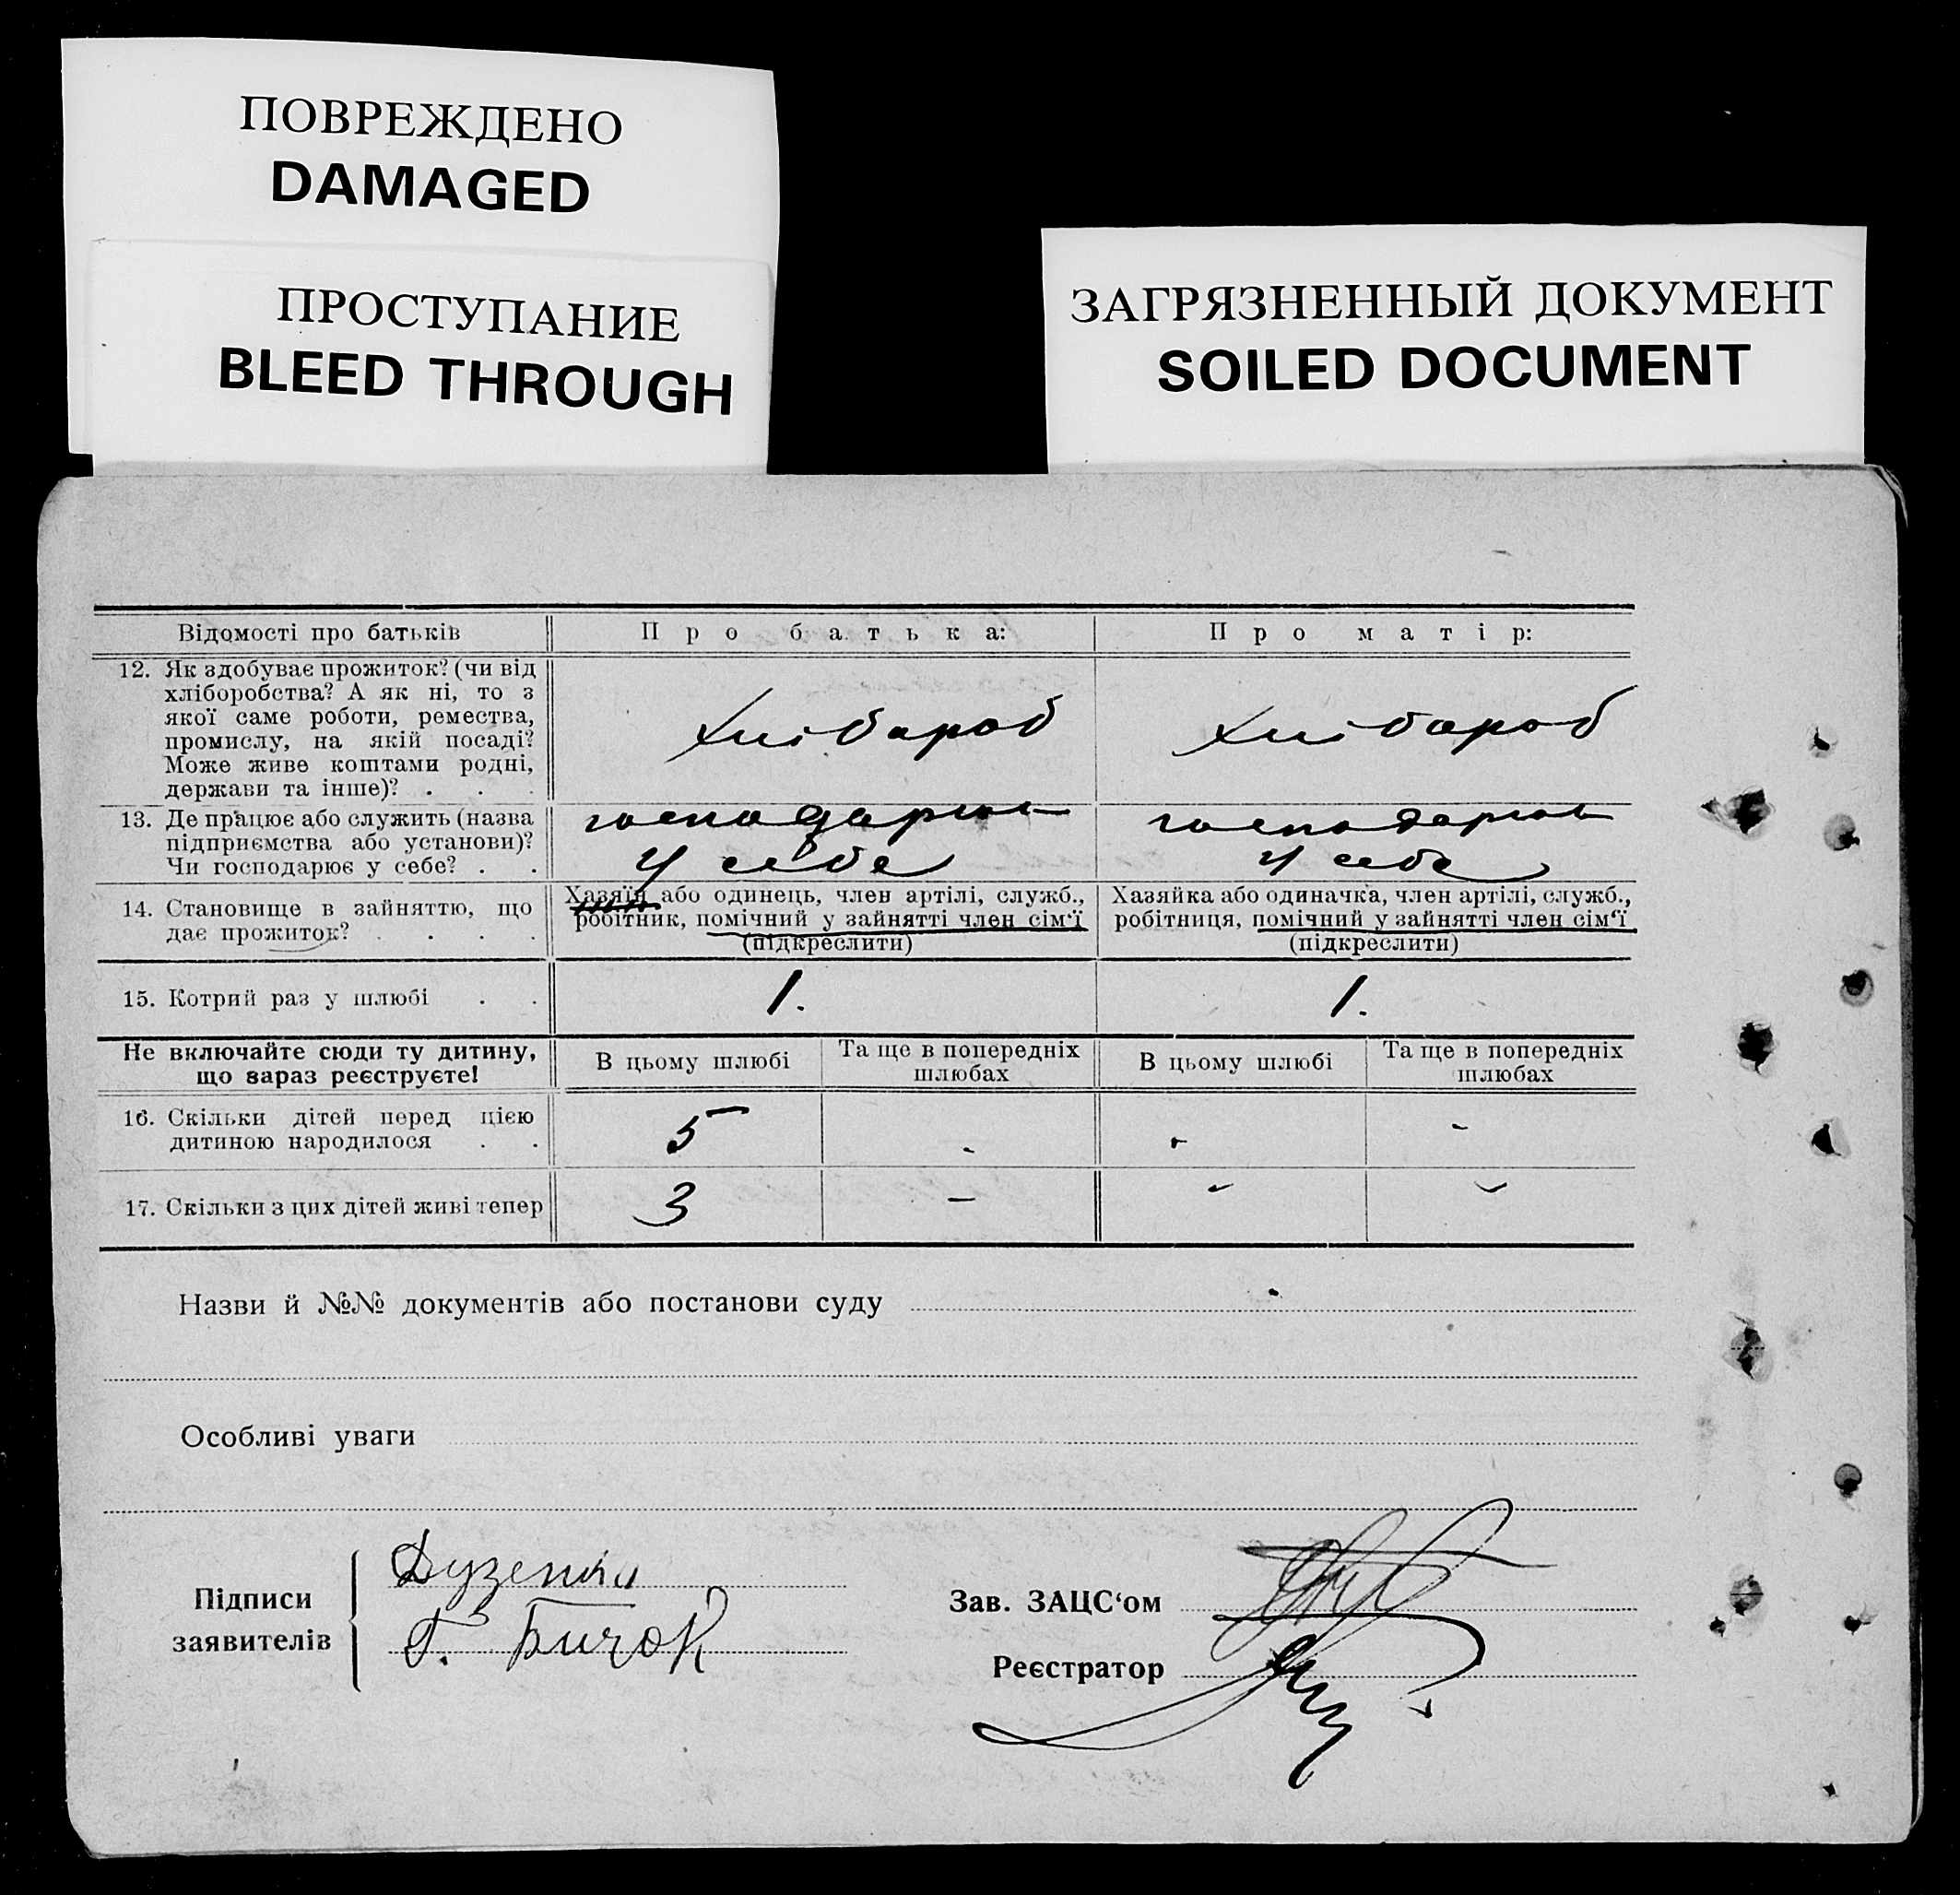 ПОВРЕЖДЕНО
DAMAGED
ПРОСТУПАНИЕ
BLEED THROUGH
ЗАГРЯЗНЕННЫЙ ДОКУМЕНТ
SOILED DOCUMENT
Відомості про батьків
Про батька:
Про матір:
12. Як здобуває прожиток? (чи від
хліборобства? А як ні, то з
якої саме роботи, ремества,
промислу, на якій посаді?
Може живе коштами родні,
держави та інше)? . . .
Хлібароб
Хлібароб
13. Де працює або служить (назва
підприємства або установи)?
Чи господарює у себе? . .
господарює
у себе
господарює
у себе
14. Становище в зайняттю, що
дає прожиток? . . . .
Хазяїн або одинець, член артілі, служб.,
робітник, помічний у зайнятті член сім‘ї
(підкреслити)
Хазяйка або одиначка, член артілі, служб.,
робітниця, помічний у зайнятті член сім‘ї
(підкреслити)
15. Котрий раз у шлюбі . .
1.
1.
Не включайте сюди ту дитину,
що зараз реєструєте!
В цьому шлюбі
Та ще в попередніх
шлюбах
В цьому шлюбі
Та ще в попередніх
шлюбах
16. Скільки дітей перед цією
дитиною народилося . .
5
-
-
-
17. Скільки з цих дітей живі тепер
3
-
-
-
Назви й №№ документів або постанови суду
Особливі уваги
Підписи
заявителів
Г. Бичок
Зав. ЗАЦС‘ом
Реєстратор